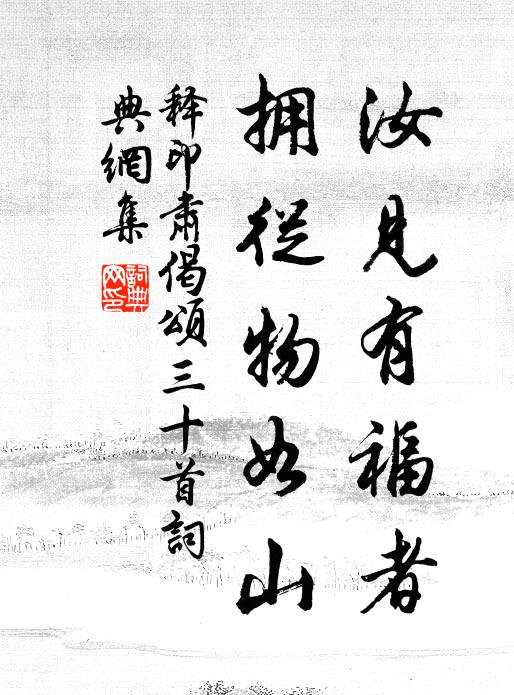 汝見有福者
拥從物如山
释印肅偈頌三十首詞
典網集
詞典
网印